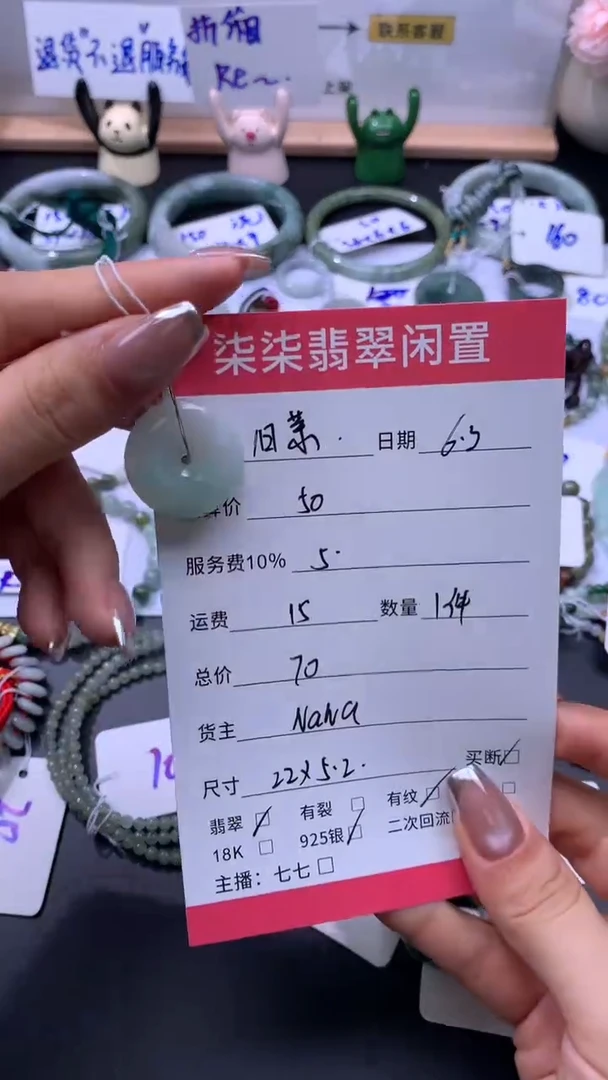 退货不退服务
折烟
联系客服
上架
160
80
柒柒翡翠闲置
日期 6.3
算价 50
服务费10% 5.
运费 15 数量 1件
总价 70
货主 NaNa
尺寸 22X5.2. 买断
翡翠 有裂 有纹
18K 925银 二次回流
主播：七七